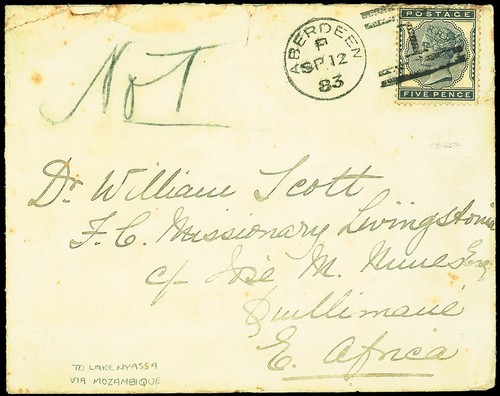 POSTAGE
FIVE PENCE
ABERDEEN
SP 12
83
Not
Dr. William Scott
F. C. Missionary Livingstonia
c/- José M. Nunes Esq
Quillimane
E. Africa
TO LAKE NYASSA
VIA MOZAMBIQUE